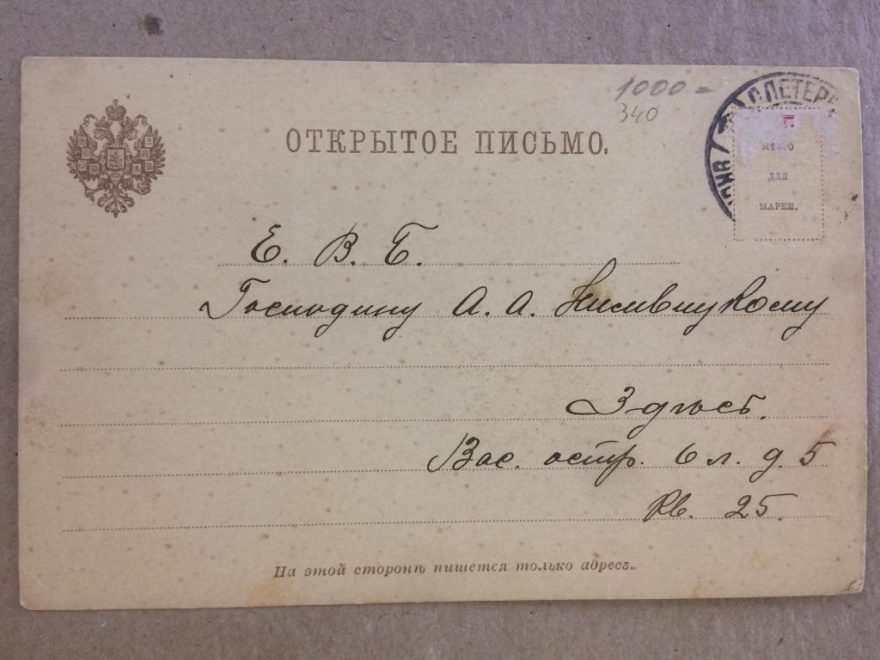 1000 -
340
С.ПЕТЕР
ОТКРЫТОЕ ПИСЬМО.
МѢСТО
ДЛЯ
МАРКИ.
Е. В. Б.
Господину А. А.
Здѣсь.
Вас. остр. 6 л. д. 5
Кв. 25.
На этой сторонѣ пишется только адресъ.